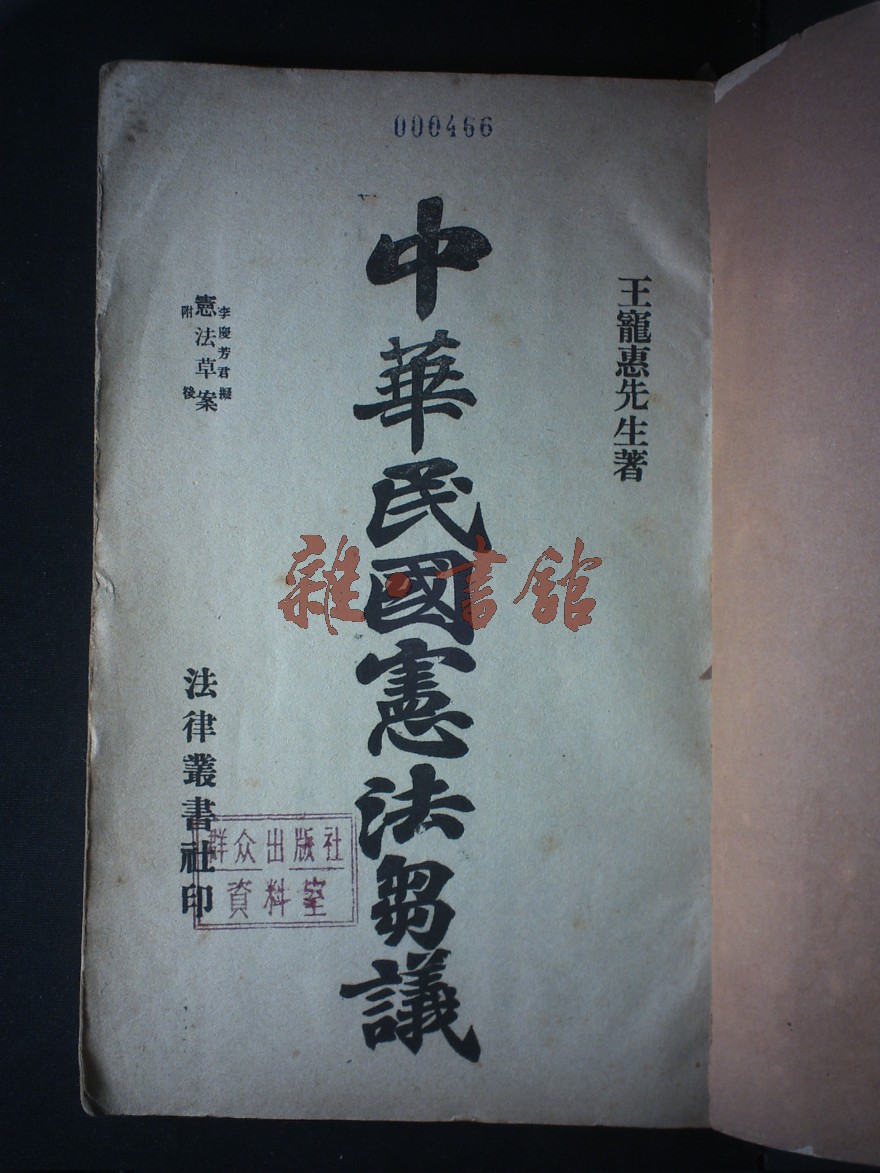 000466
王寵惠先生著
中華民國憲法芻議
李慶芳君擬
憲法草案
附後
法律叢書社印
群众出版社
資料室
雜·書館